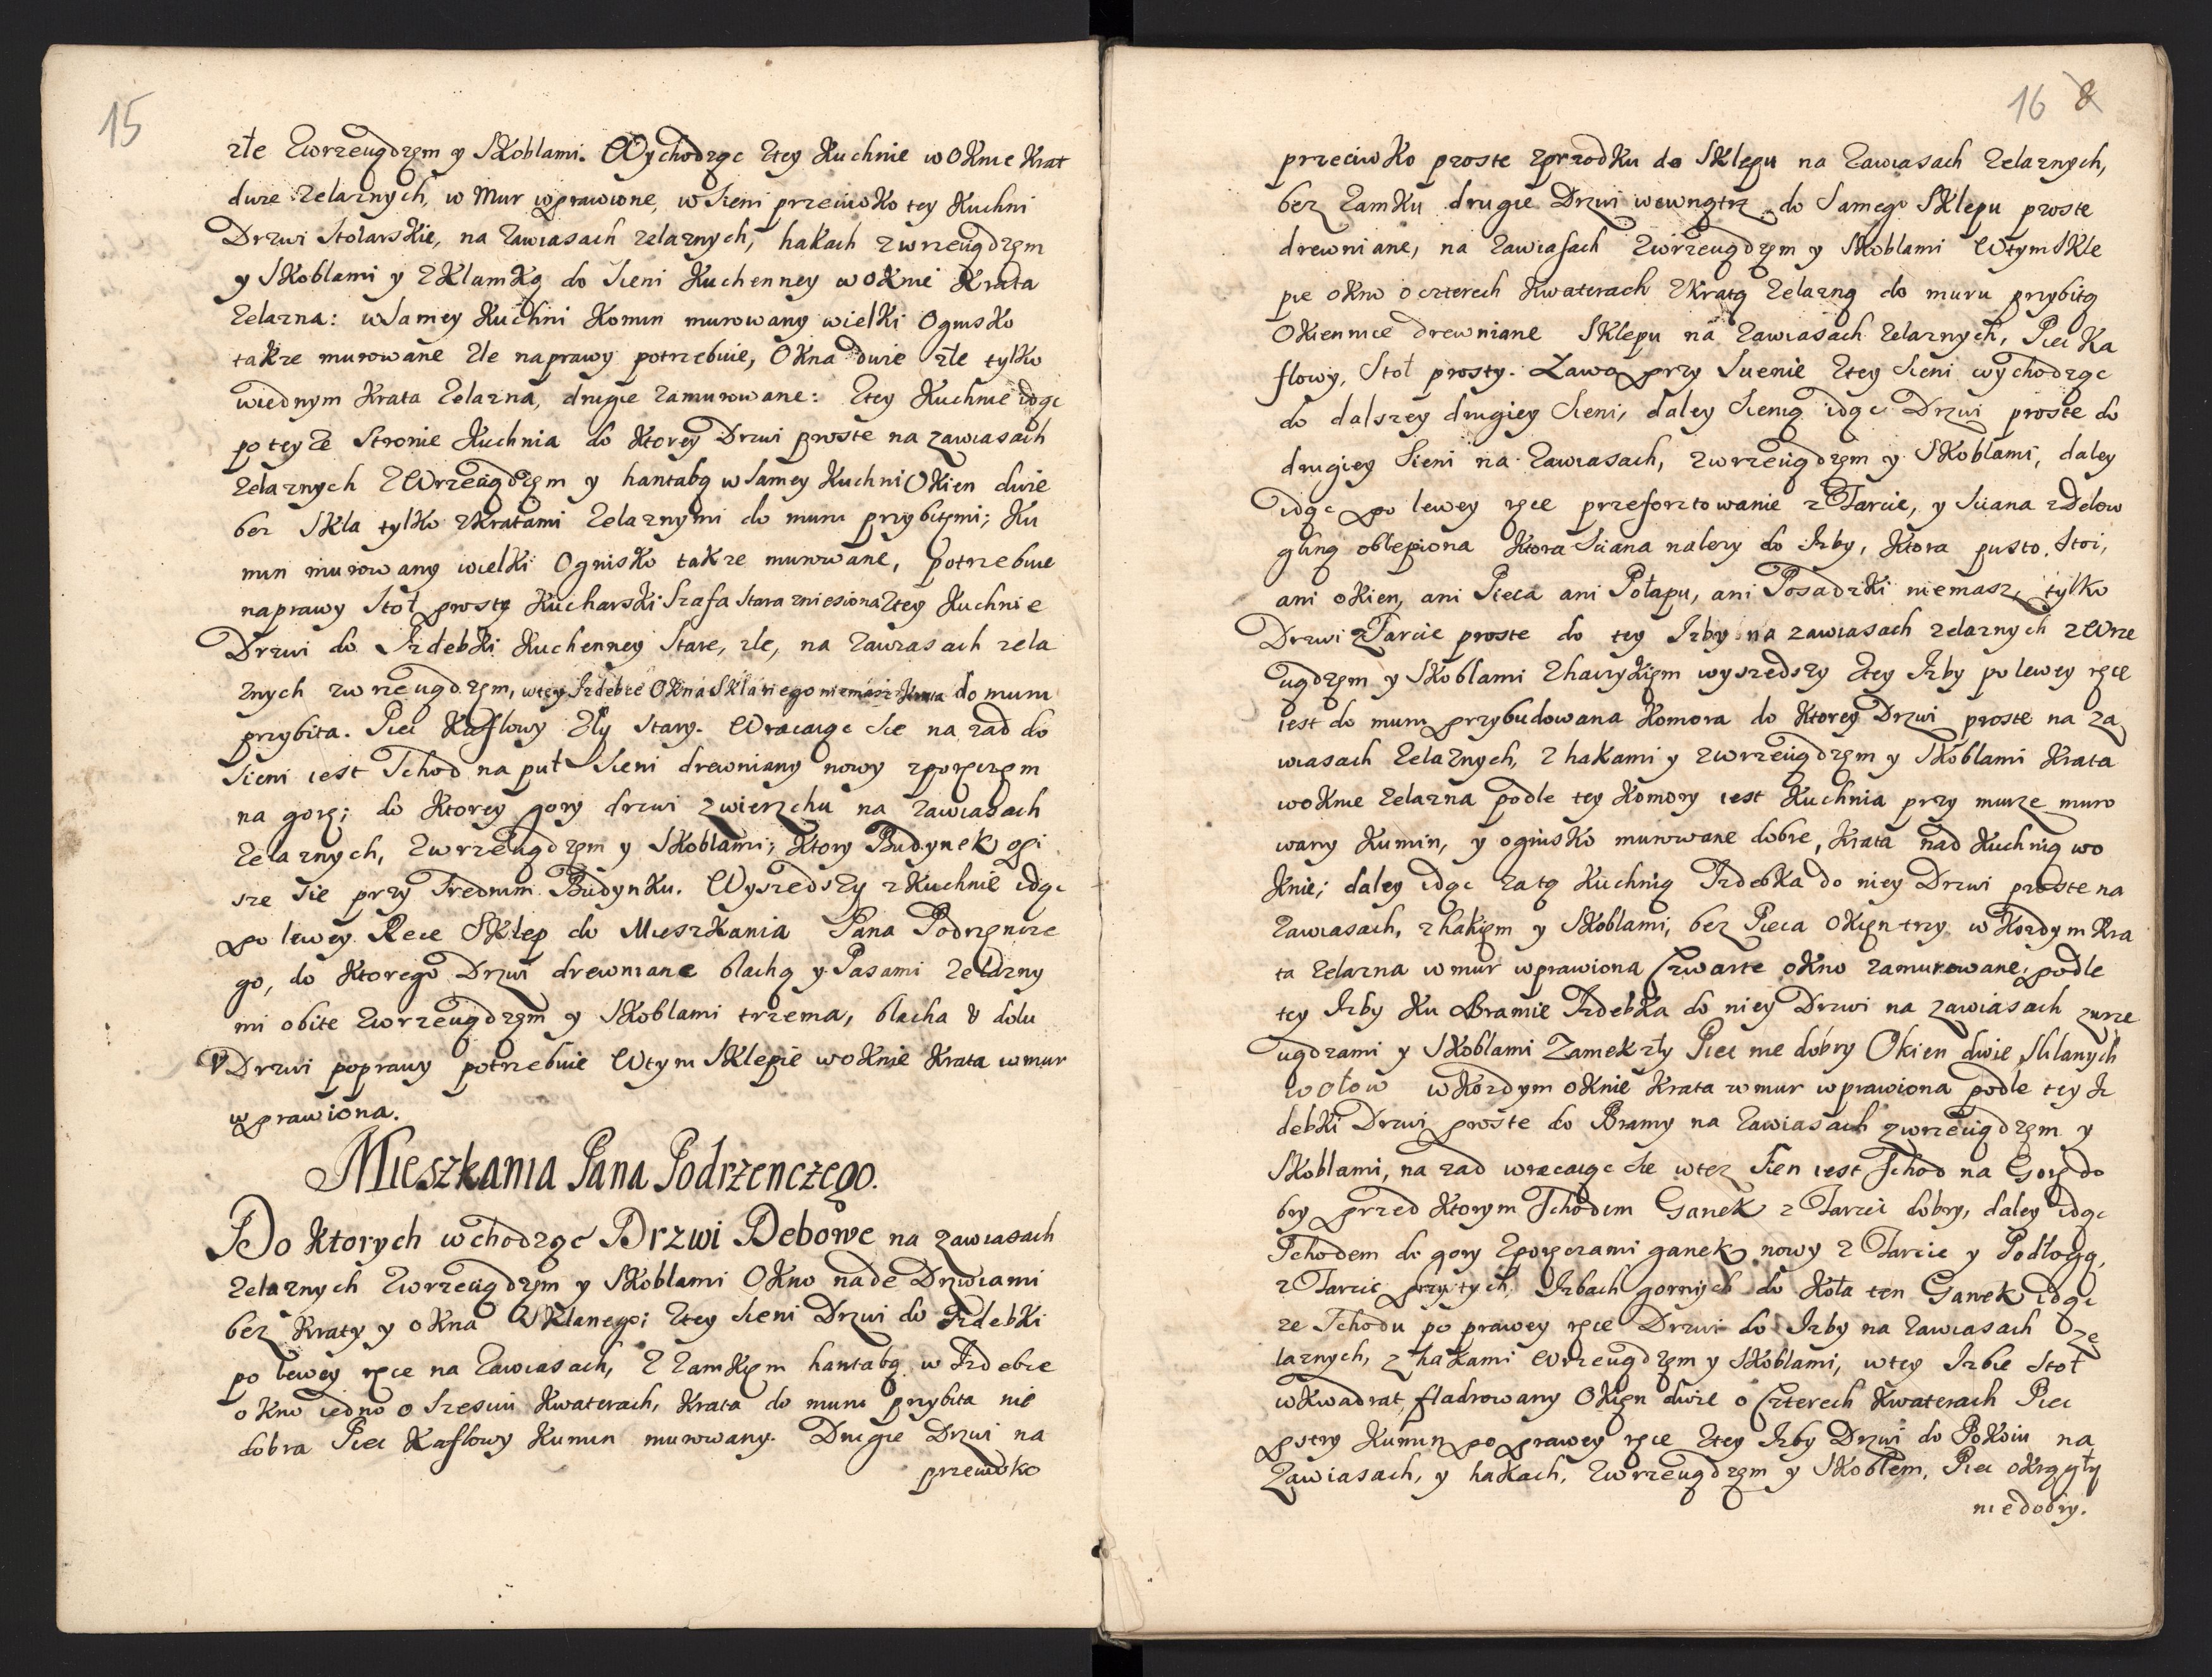 15
złe Zwrzeuądzęm y Skoblami. Wychodząc Ztey Kuchnie w Oknie Krat
dwie Zelaznych, w Mur wprawione, w Sieni przeciwko tey Kuchni
Drzwi Stolarskie, na Zawiasach zelaznych, hakach zwrzeuądzęm
y Skoblami y zKlamką do Sieni Kuchenney w oknie Krata
Zelazna: w Samey Kuchni Komin murowany wielki Ognisko
takze murowane Zle naprawy potrzebuie, Okna dwie złe tylko
wiednym Krata Zelazna, drugie zamurowane: Ztey Kuchnie idąc
po teyze Stronie Kuchnia do Ktorey Drzwi proste na zawiasach
Zelaznych ZWrzeuądzęm y hantabą w Samey Kuchni Okien dwie
bez Skla tylko zKratami Zelaznymi do muru przybitymi; Ku
min murowany wielki Ognisko takze murowane, potrzebuie
naprawy Stoł prosty Kucharski Szafa Stara zniesiona Ztey Kuchnie
Drzwi do Izdebki Kuchenney Stare, złe, na Zawiasach zela
znych zwrzeuądzęm, wtey Izdebce Okna Sklanego niemasz Krata do muru
przybita. Piec Kaflowy Zły Stary. Wracaiąc Sie na zad do
Sieni iest Schod na puł Sieni drewniany nowy zporęczęm
na gorę; do Ktorey gory drzwi zwierzchu na Zawiasach
Zelaznych, Zwrzeuądzęm y Skoblami; Ktory Budynek opi
sze Sie przy Srednim Budynku. Wyszedszy zKuchnie idąc
po lewey Ręce Sklep do Mieszkania Pana Podrzęncze
go, do Ktorego Drzwi drewniane blachą y Pasami Zelazny
mi obite Zwrzeuądzęm y Skoblami trzema, blacha u dolu
u Drzwi poprawy potrzebuie Wtym Sklepie w oknie Krata w mur
wprawiona.
Mieszkania Pana Podrzenczego.
Do Ktorych wchodząc Drzwi Debowe na zawiasach
Zelaznych Zwrzeuądzęm y Skoblami Okno nade Drzwiami
bez Kraty y okna Sklanego; Ztey Sieni Drzwi do Izdebki
po lewey ręce na Zawiasach, Z Zamkięm hantabą w Izdebce
okno iedno o Szesciu Kwaterach, Krata do muru przybita nie
dobra Piec Kaflowy Kumin murowany. Drugie Drzwi na
przeciwko
16 8
przeciwko proste zprzodku do Sklepu na Zawiasach Zelaznych,
bez Zamku drugie Drzwi wewnątrz do Samego Sklepu proste
drewniane, na Zawiasach Zwrzeuądzęm y Skoblami Wtym Skle
pie okno o czterech Kwaterach zKratą Zelazną do muru przybitą
Okiennice drewniane Sklepu na Zawiasach Zelaznych, Piec Ka
flowy, Stoł prosty. Ława przy Scienie Ztey Sieni wychodząc
do dalszey drugiey Sieni, daley Sienią idąc Drzwi proste do
drugiey Sieni na Zawiasach, zwrzeuądzęm y Skoblami, daley
idąc po lewey ręce przeforztowanie z Tarcic, y Sciana zDelow
gliną oblepiona Ktora Sciana nalezy do Izby, Ktora pusto Stoi,
ani okien, ani Pieca ani Połapu, ani Posadzki niemasz, tylko
Drzwi z Tarcic proste do tey Izby na zawiasach zelaznych zWrze
uądzęm y Skoblami zhaczykięm wyszedszy Ztey Izby po lewey ręce
iest do muru przybudowana Komora do Ktorey Drzwi proste na za
wiasach Zelaznych, z hakami y zwrzeuądzęm y Skoblami Krata
w oknie Zelazna podle tey Komory iest Kuchnia przy murze muro
wany Kumin, y ognisko murowane dobre, Krata nad Kuchnią wo
knie; daley idąc za tą Kuchnią Izdebka do niey Drzwi proste na
Zawiasach, zhakięm y Skoblami, bez Pieca Okięn trzy w Kozdym Kra
ta Zelazna w mur wprawiona Czwarte okno zamurowane, podle
tey Izby Ku Bramie Izdebka do niey Drzwi na zawiasach zwrze
uądzami y Skoblami Zamek zły Piec nie dobry Okien dwie Sklanych
wołow w Kozdym oknie Krata w mur wprawiona podle tey Iz
debki Drzwi proste do Bramy na Zawiasach zwrzeuądzęm y
Skoblami, na zad wracaiąc Sie wtez Sien iest Schod na Gorę do
bry przed Ktorym Schodem Ganek z Tarcic dobry, daley idąc
Schodem do gory Zporęczami ganek nowy z Tarcic y Podłogą
z Tarcic przy tych Izbach gornych do Koła ten Ganek idąc
ze Schodu po prawey ręce Drzwi do Izby na Zawiasach Ze
laznych, z hakami Wrzeuądzęm y Skoblami, wtey Izbie Stoł
w Kwadrat fladrowany Okięn dwie o Czterech Kwaterach Piec
pstry Kumin po prawey ręce Ztey Izby Drzwi do Pokoiu na
Zawiasach, y hakach, Zwrzeuądzęm y Skoblem, Piec okrągły
niedobry.